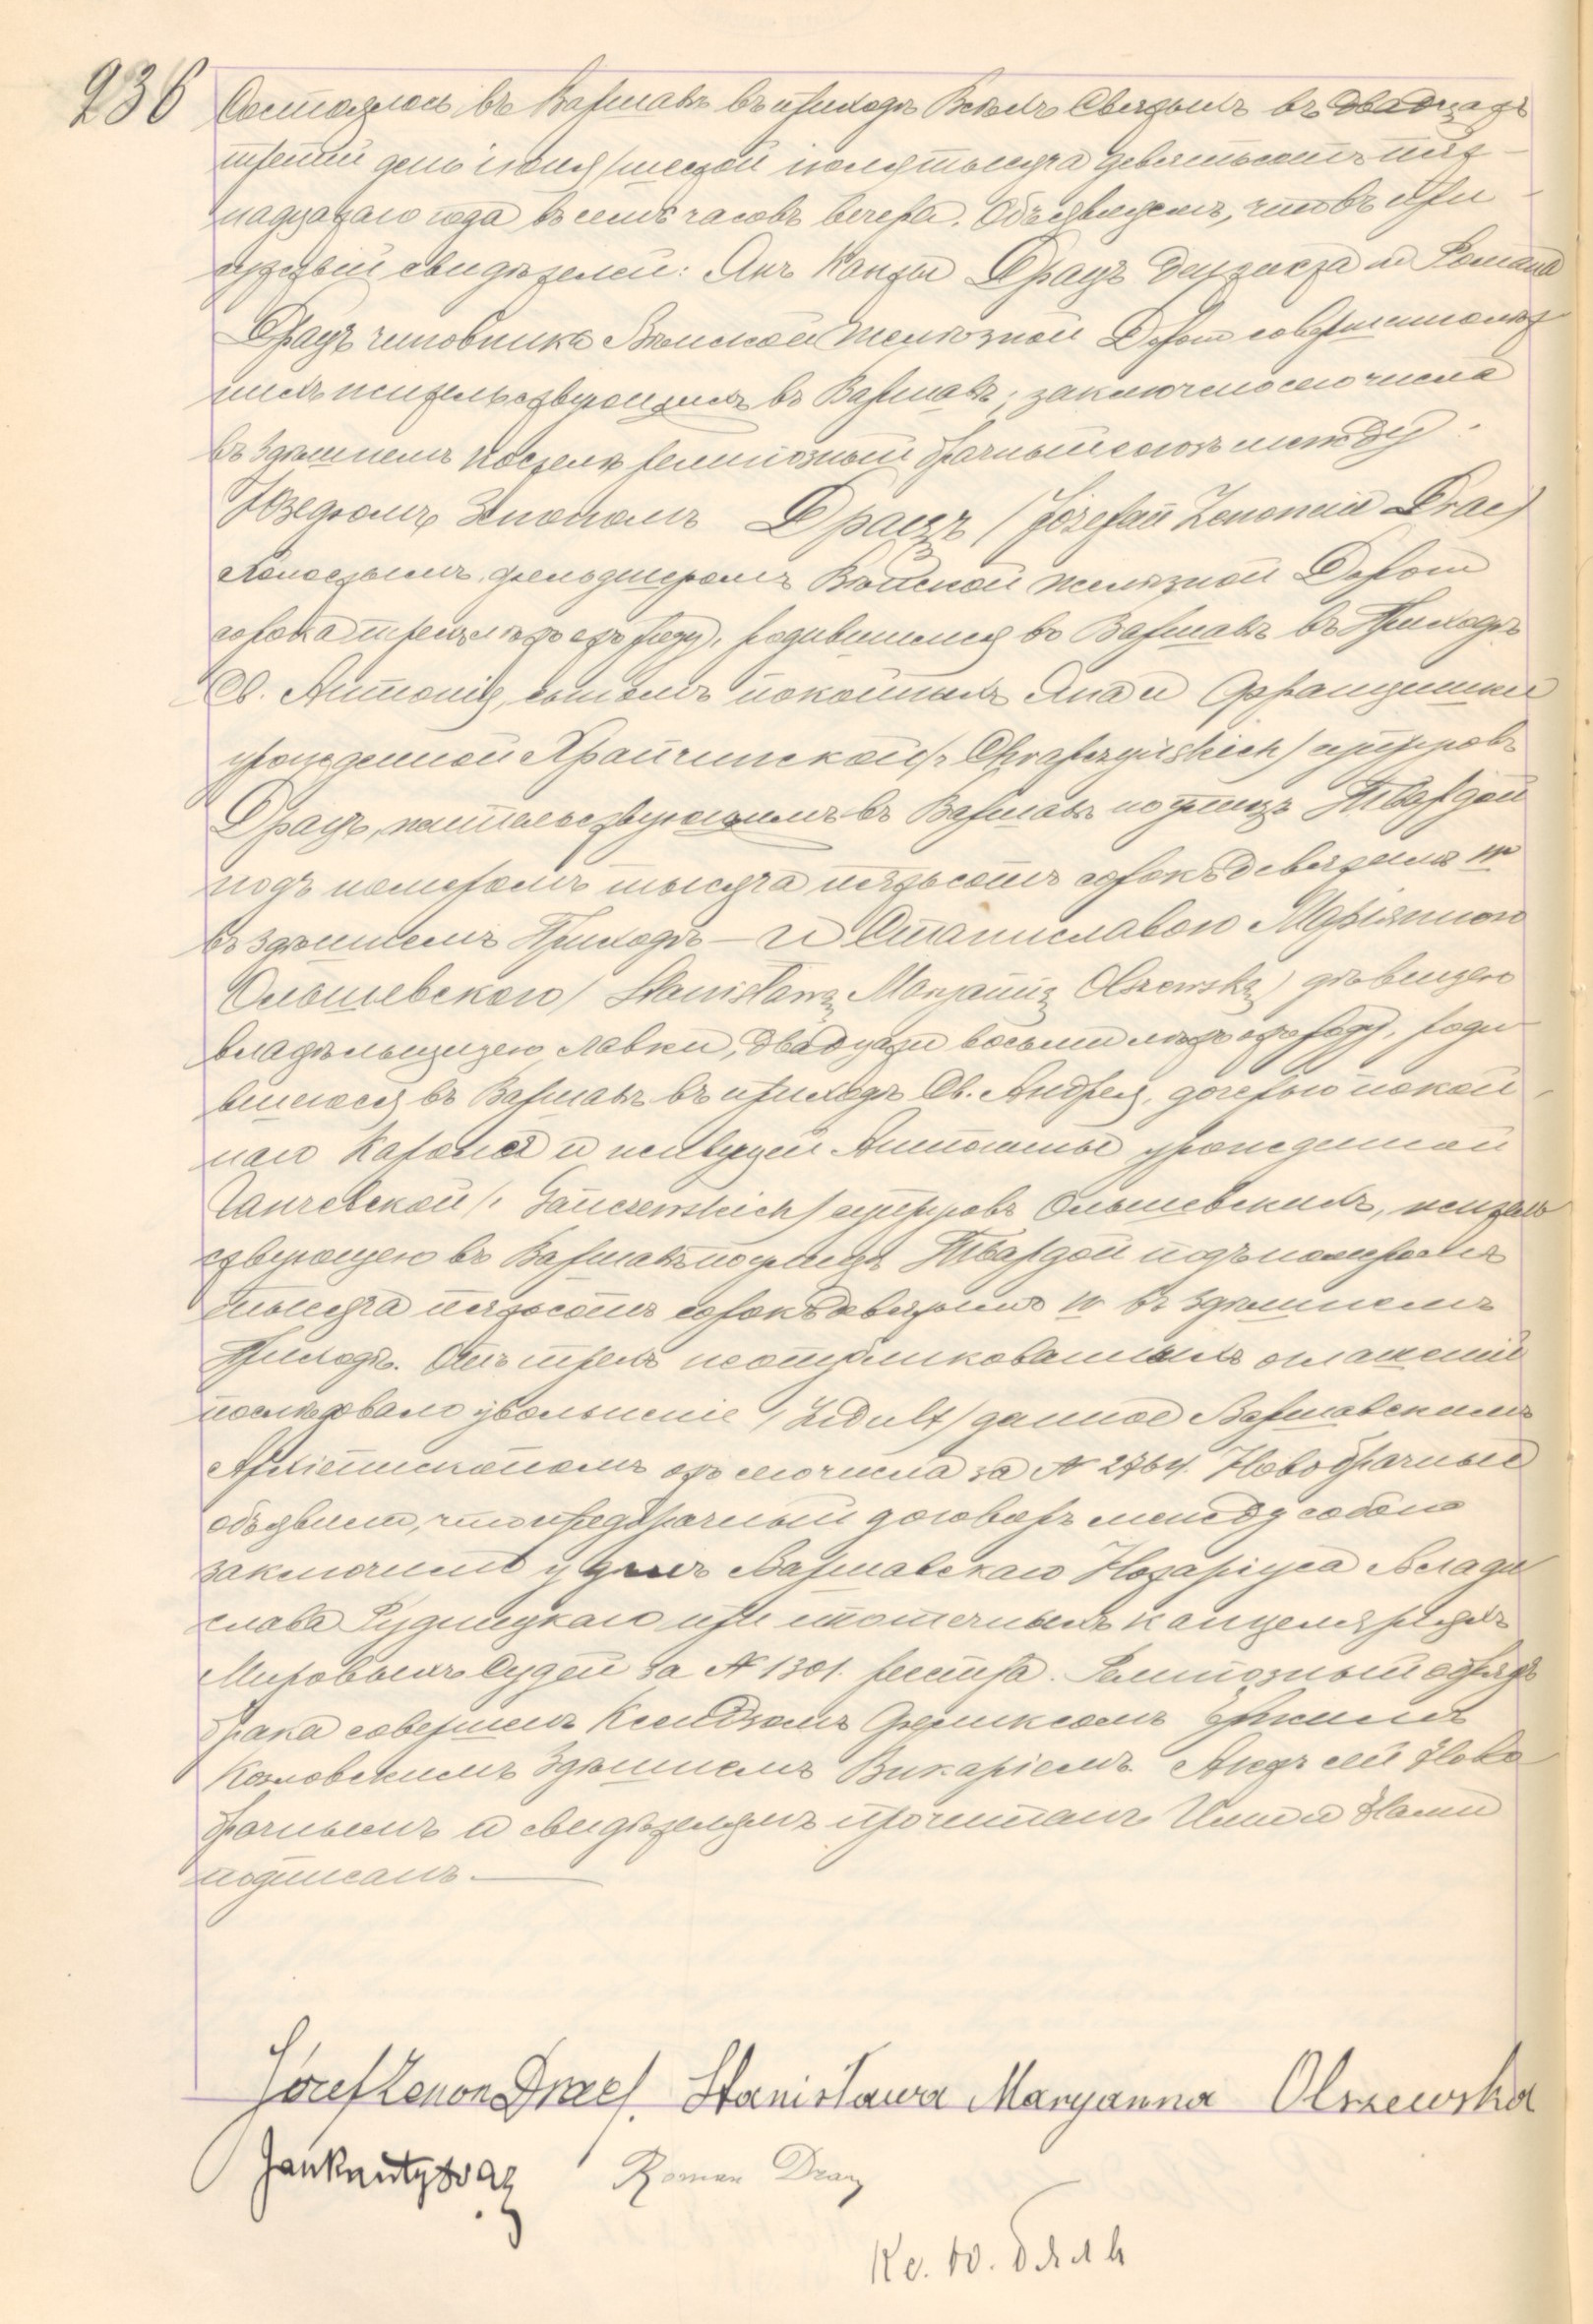 236
Состоялось въ Варшавѣ въ приходѣ Всѣхъ Святыхъ въ двадцать
третій день іюня /шестой іюля/ тысяча девятьсотъ пят-
надцатаго года въ семь часовъ вечера. Объявляемъ, что въ при-
сутствіи свидѣтелей: Янъ Канты Драцъ дантиста и Романа
Драцъ чиновника Вѣнской Желѣзной Дороги совершеннолѣт
нихъ жительствующихъ въ Варшавѣ; заключено сего числа
въ здѣшнемъ костелѣ религіозный брачный союзъ между
Юзефомъ Зенономъ Драцъ (Józefem Zenonem Drac)
холостымъ, фельдшеромъ Вѣнской желѣзной Дороги
сорока трехъ лѣтъ отъ роду, родившимся въ Варшавѣ въ Приходѣ
Св. Антонія, сыномъ покойныхъ Яна и Францишки
урожденной Храпчинской /z Chrapczyńskich/ супруговъ
Драцъ, жительствующимъ въ Варшавѣ по улицѣ Твардой
подъ номеромъ тысяча пятьсотъ сорокъ девятымъ
въ здѣшнемъ Приходѣ — и Станиславою Маріянною
Ольшевскою / Stanisławą Maryanną Olszewską) дѣвицею
владѣлицею лавки, двадцати восьми лѣтъ отъ роду, роди
вшеюся въ Варшавѣ въ приходѣ Св. Андрея, дочерью покой
наго Кароля и живущей Антонины урожденной
Ганчевской /z Gańczewskich/ супруговъ Ольшевскихъ, житель
ствующею въ Варшавѣ по улицѣ Твардой подъ номеромъ
тысяча пятьсотъ сорокъ девятымъ въ здѣшнемъ
Приходѣ. Отъ трехъ неопубликованныхъ оглашеній
послѣдовало увольненіе / Indult / данное Варшавскимъ
Архіепископомъ отъ сего числа за N 2764. Новобрачные
объявили, что предбрачный договоръ между собою
заключили у Варшавскаго Нотаріуса Влади
слава Рудницкаго при ипотечныхъ канцеляріяхъ
Мировыхъ Судей за N 1301. реестра. Религіозный обрядъ
брака совершенъ Ксендзомъ Феликсомъ
Козловскимъ Здѣшнимъ Викаріемъ. Актъ сей Ново
брачнымъ и свидѣтелямъ прочитанъ Ими и Нами
подписанъ.
Józef Zenon Drac. Stanisława Maryanna Olszewska
Jan Kanty Drac Roman Drac
Кс. Ю. Бялы